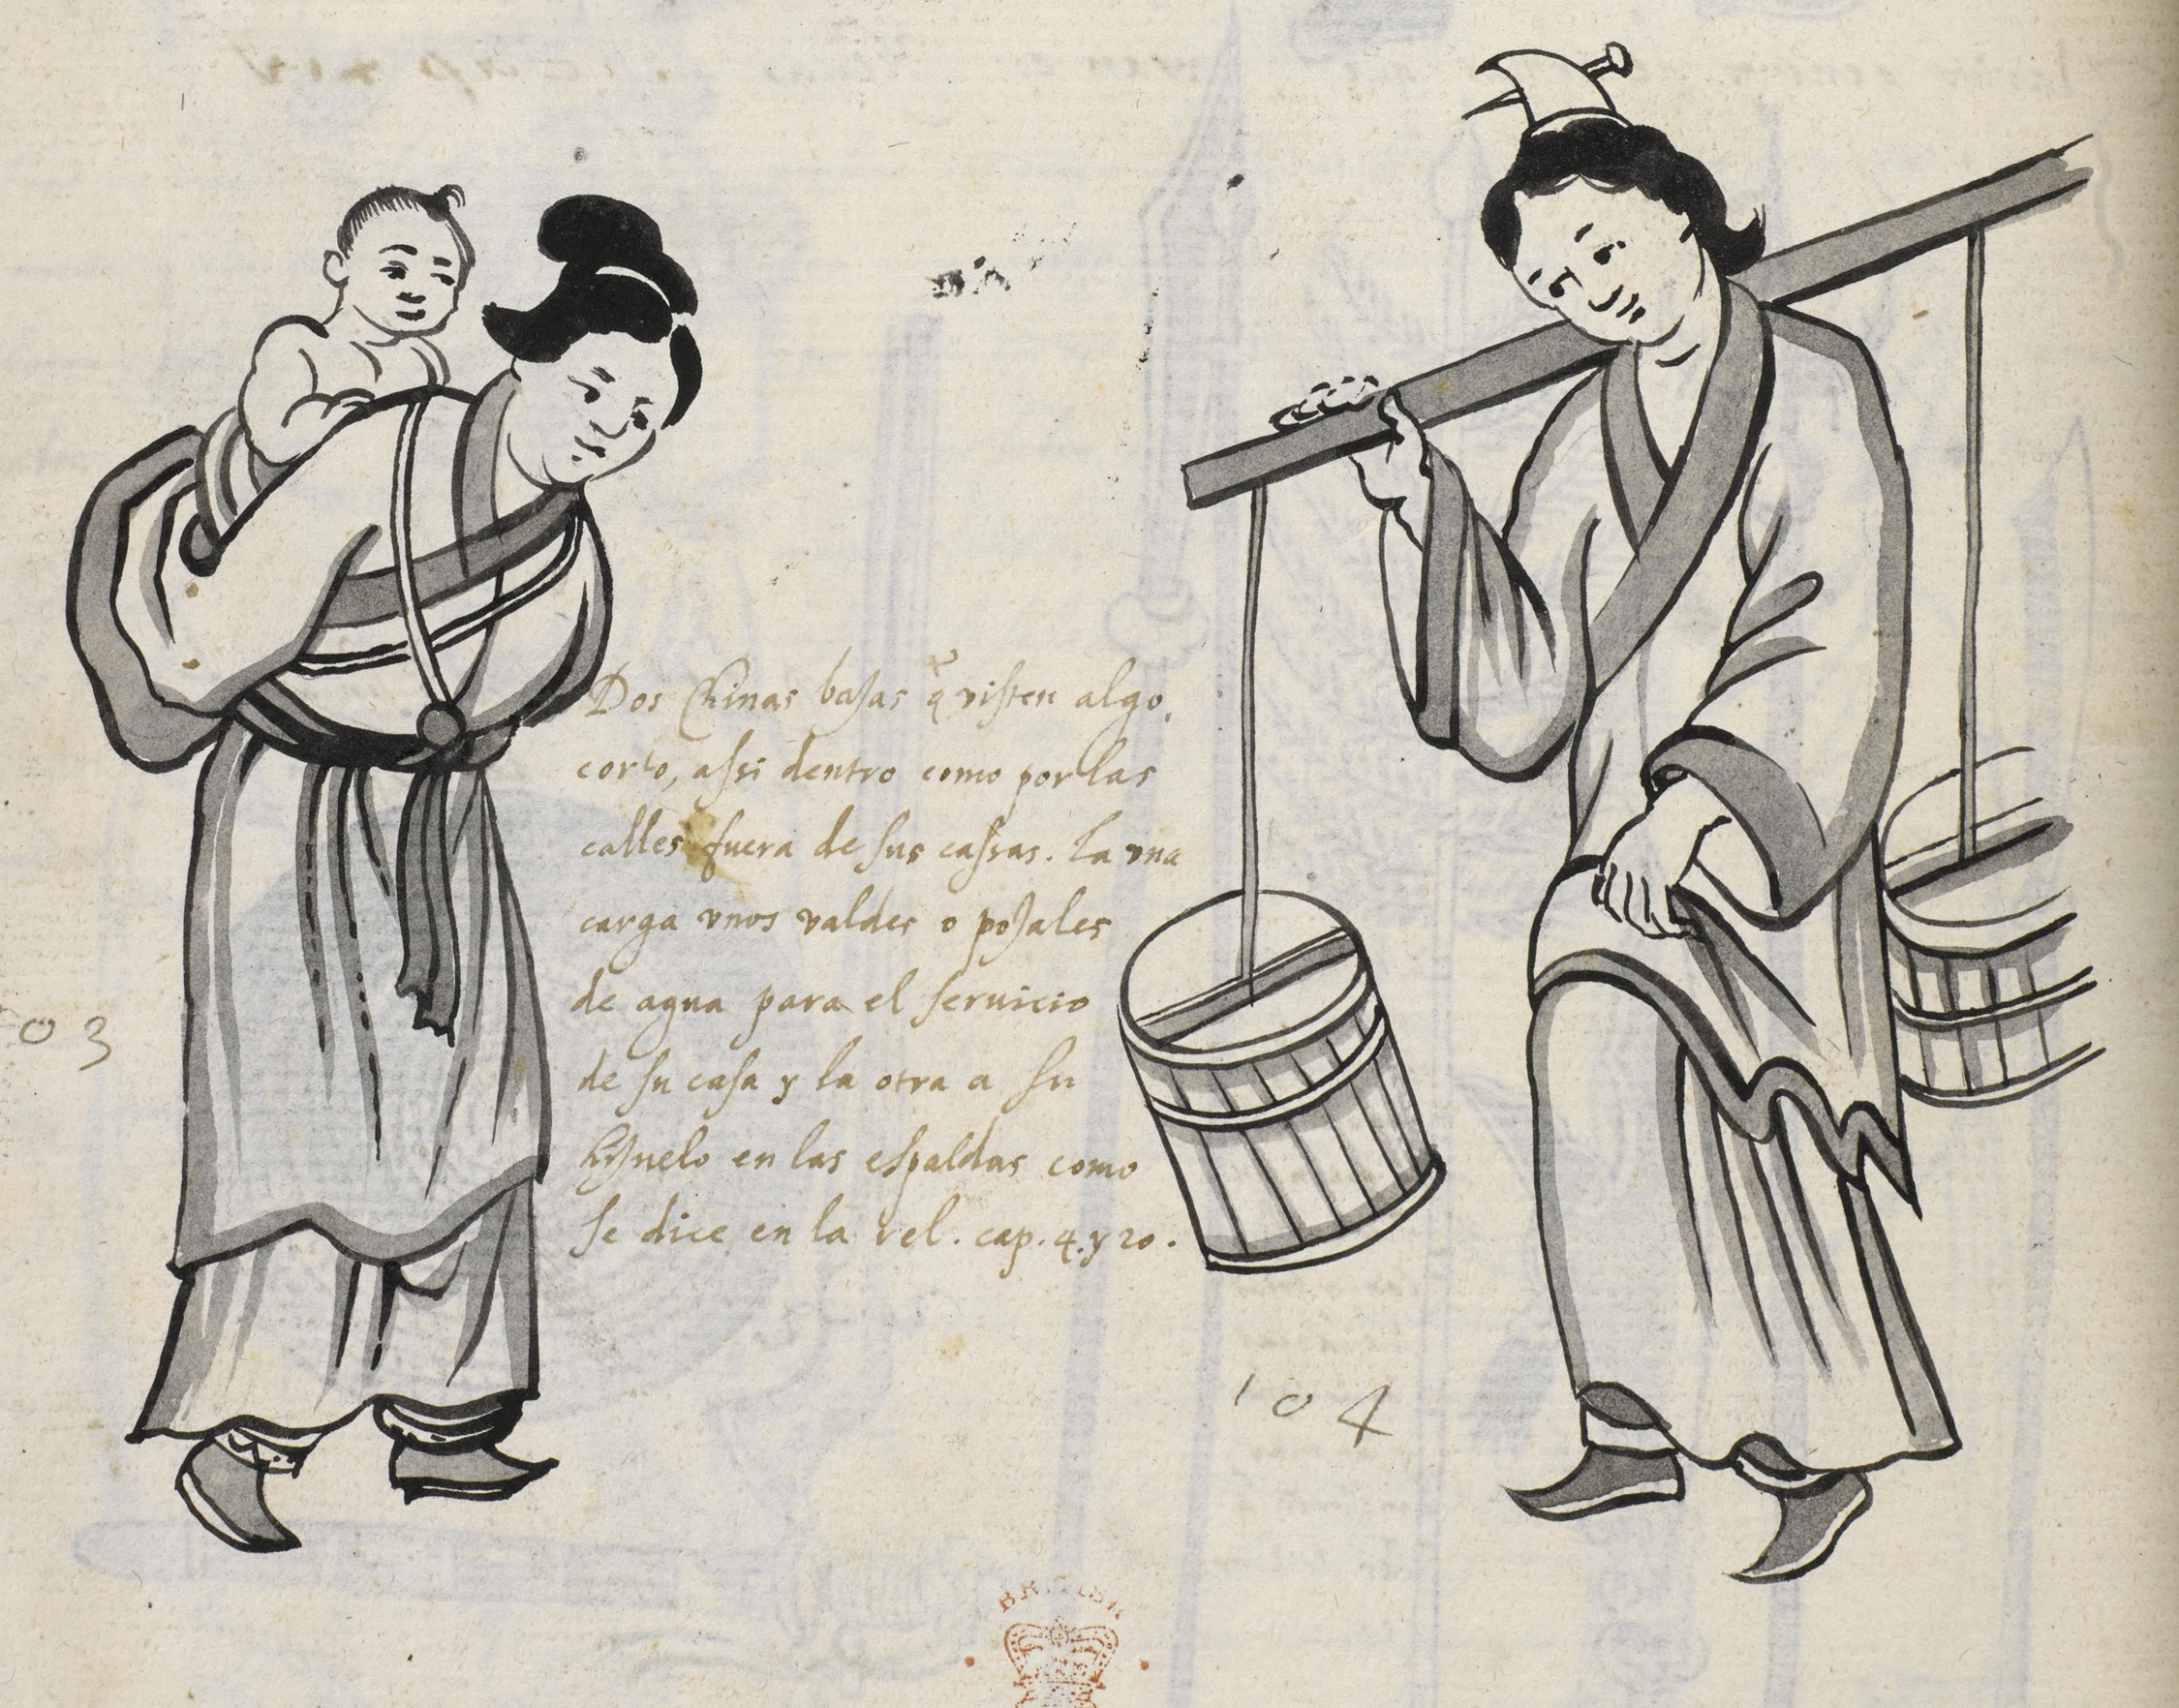 Dos Chinas bajas q̃ visten algo.
corto, assi dentro como por las
calles fuera de sus cassas. La vna
carga vnos valdes o pojales
de agua para el seruicio
de su casa y la otra a su
hijuelo en las espaldas como
se dice en la rel. cap. 4. y 20.
03
104
BRITISH